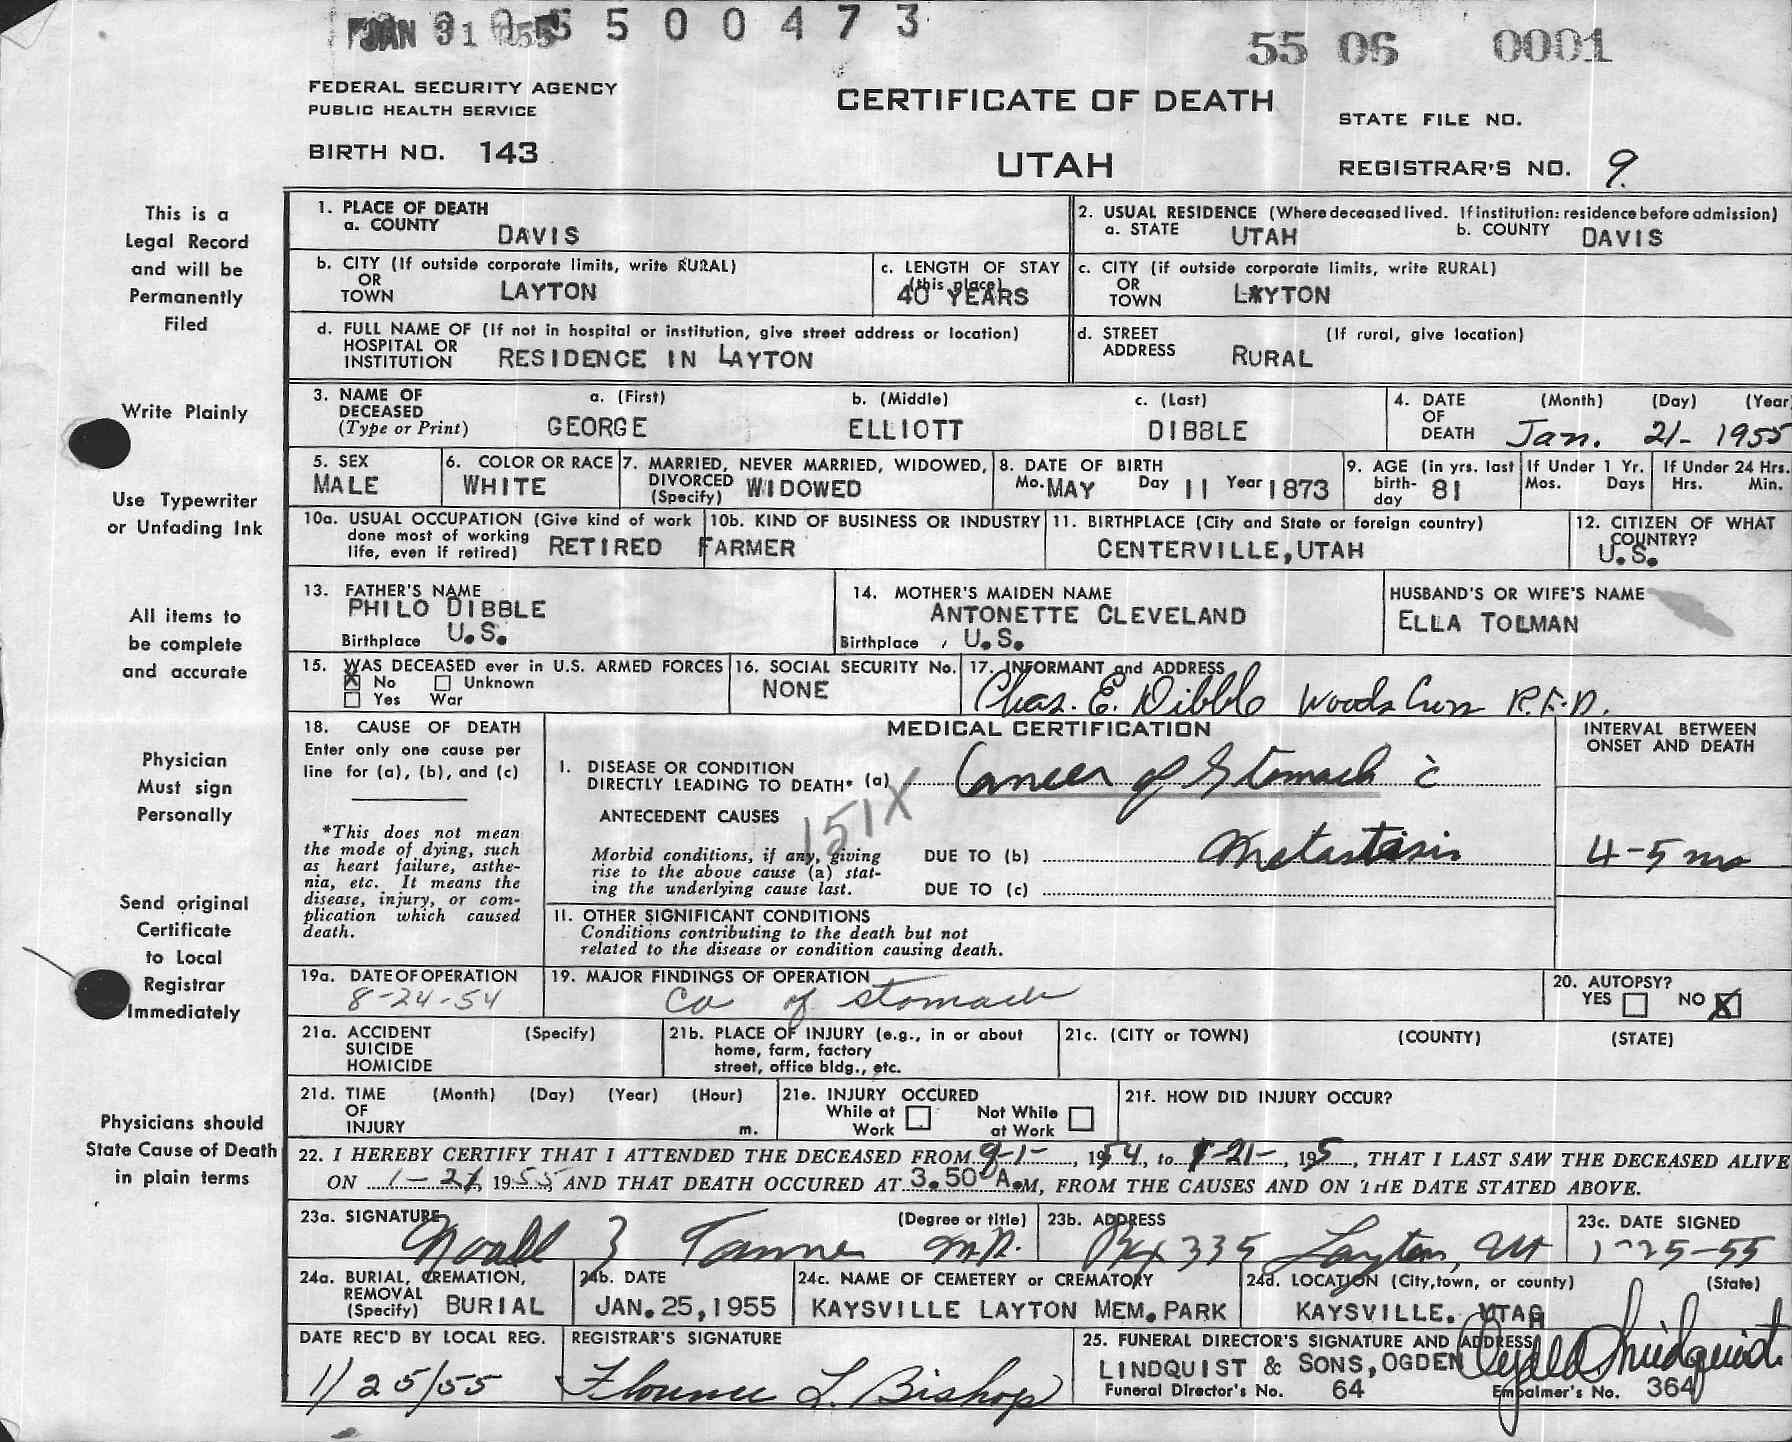 JAN 31 1955 5 5 0 0 4 7 3
55 06 0001
FEDERAL SECURITY AGENCY
PUBLIC HEALTH SERVICE
BIRTH NO. 143
CERTIFICATE OF DEATH
UTAH
STATE FILE NO.
REGISTRAR'S NO. 9.
This is a
Legal Record
and will be
Permanently
Filed
Write Plainly
Use Typewriter
or Unfading Ink
All items to
be complete
and accurate
Physician
Must sign
Personally
Send original
Certificate
to Local
Registrar
Immediately
Physicians should
State Cause of Death
in plain terms
1. PLACE OF DEATH
a. COUNTY DAVIS
2. USUAL RESIDENCE (Where deceased lived. If institution: residence before admission)
a. STATE UTAH b. COUNTY DAVIS
b. CITY (If outside corporate limits, write RURAL)
OR
TOWN LAYTON
c. LENGTH OF STAY
(this place)
40 YEARS
c. CITY (if outside corporate limits, write RURAL)
OR
TOWN LAYTON
d. FULL NAME OF (If not in hospital or institution, give street address or location)
HOSPITAL OR
INSTITUTION RESIDENCE IN LAYTON
d. STREET (If rural, give location)
ADDRESS RURAL
3. NAME OF a. (First) b. (Middle) c. (Last)
DECEASED
(Type or Print) GEORGE ELLIOTT DIBBLE
4. DATE (Month) (Day) (Year
OF
DEATH Jan. 21- 1955
5. SEX
MALE
6. COLOR OR RACE
WHITE
7. MARRIED, NEVER MARRIED, WIDOWED,
DIVORCED
(Specify) WIDOWED
8. DATE OF BIRTH
Mo. MAY Day 11 Year 1873
9. AGE (in yrs. last
birth-
day 81
If Under 1 Yr.
Mos. Days
If Under 24 Hrs.
Hrs. Min.
10a. USUAL OCCUPATION (Give kind of work
done most of working
life, even if retired) RETIRED FARMER
10b. KIND OF BUSINESS OR INDUSTRY
11. BIRTHPLACE (City and State or foreign country)
CENTERVILLE, UTAH
12. CITIZEN OF WHAT
COUNTRY?
U.S.
13. FATHER'S NAME
PHILO DIBBLE
Birthplace U.S.
14. MOTHER'S MAIDEN NAME
ANTONETTE CLEVELAND
Birthplace , U.S.
HUSBAND'S OR WIFE'S NAME
ELLA TOLMAN
15. WAS DECEASED ever in U.S. ARMED FORCES
X No Unknown
Yes War
16. SOCIAL SECURITY No.
NONE
17. INFORMANT and ADDRESS
Chas. E. Dibble Woods Cross R.F.D.
18. CAUSE OF DEATH
Enter only one cause per
line for (a), (b), and (c)
*This does not mean
the mode of dying, such
as heart failure, asthe-
nia, etc. It means the
disease, injury, or com-
plication which caused
death.
MEDICAL CERTIFICATION
INTERVAL BETWEEN
ONSET AND DEATH
I. DISEASE OR CONDITION
DIRECTLY LEADING TO DEATH* (a) Cancer of Stomach c
ANTECEDENT CAUSES
151X
Morbid conditions, if any, giving
rise to the above cause (a) stat-
ing the underlying cause last.
DUE TO (b) Metastasis 4-5 mo
DUE TO (c)
II. OTHER SIGNIFICANT CONDITIONS
Conditions contributing to the death but not
related to the disease or condition causing death.
19a. DATE OF OPERATION
8-24-54
19. MAJOR FINDINGS OF OPERATION
Ca of stomach
20. AUTOPSY?
YES NO X
21a. ACCIDENT (Specify)
SUICIDE
HOMICIDE
21b. PLACE OF INJURY (e.g., in or about
home, farm, factory
street, office bldg., etc.
21c. (CITY or TOWN) (COUNTY) (STATE)
21d. TIME (Month) (Day) (Year) (Hour)
OF
INJURY m.
21e. INJURY OCCURED
While at Not While
Work at Work
21f. HOW DID INJURY OCCUR?
22. I HEREBY CERTIFY THAT I ATTENDED THE DECEASED FROM 9-1-, 1954, to 1-21-, 195, THAT I LAST SAW THE DECEASED ALIVE
ON 1-21, 1955, AND THAT DEATH OCCURED AT 3.50 A.M, FROM THE CAUSES AND ON THE DATE STATED ABOVE.
23a. SIGNATURE (Degree or title)
Noall Z Tanner M.D.
23b. ADDRESS
Box 335 Layton, Ut
23c. DATE SIGNED
1-25-55
24a. BURIAL, CREMATION,
REMOVAL
(Specify) BURIAL
24b. DATE
JAN. 25, 1955
24c. NAME OF CEMETERY or CREMATORY
KAYSVILLE LAYTON MEM. PARK
24d. LOCATION (City, town, or county) (State)
KAYSVILLE. UTAH
DATE REC'D BY LOCAL REG.
1/25/55
REGISTRAR'S SIGNATURE
Florence L. Bishop
25. FUNERAL DIRECTOR'S SIGNATURE AND ADDRESS
LINDQUIST & SONS, OGDEN Lindquist
Funeral Director's No. 64 Embalmer's No. 364